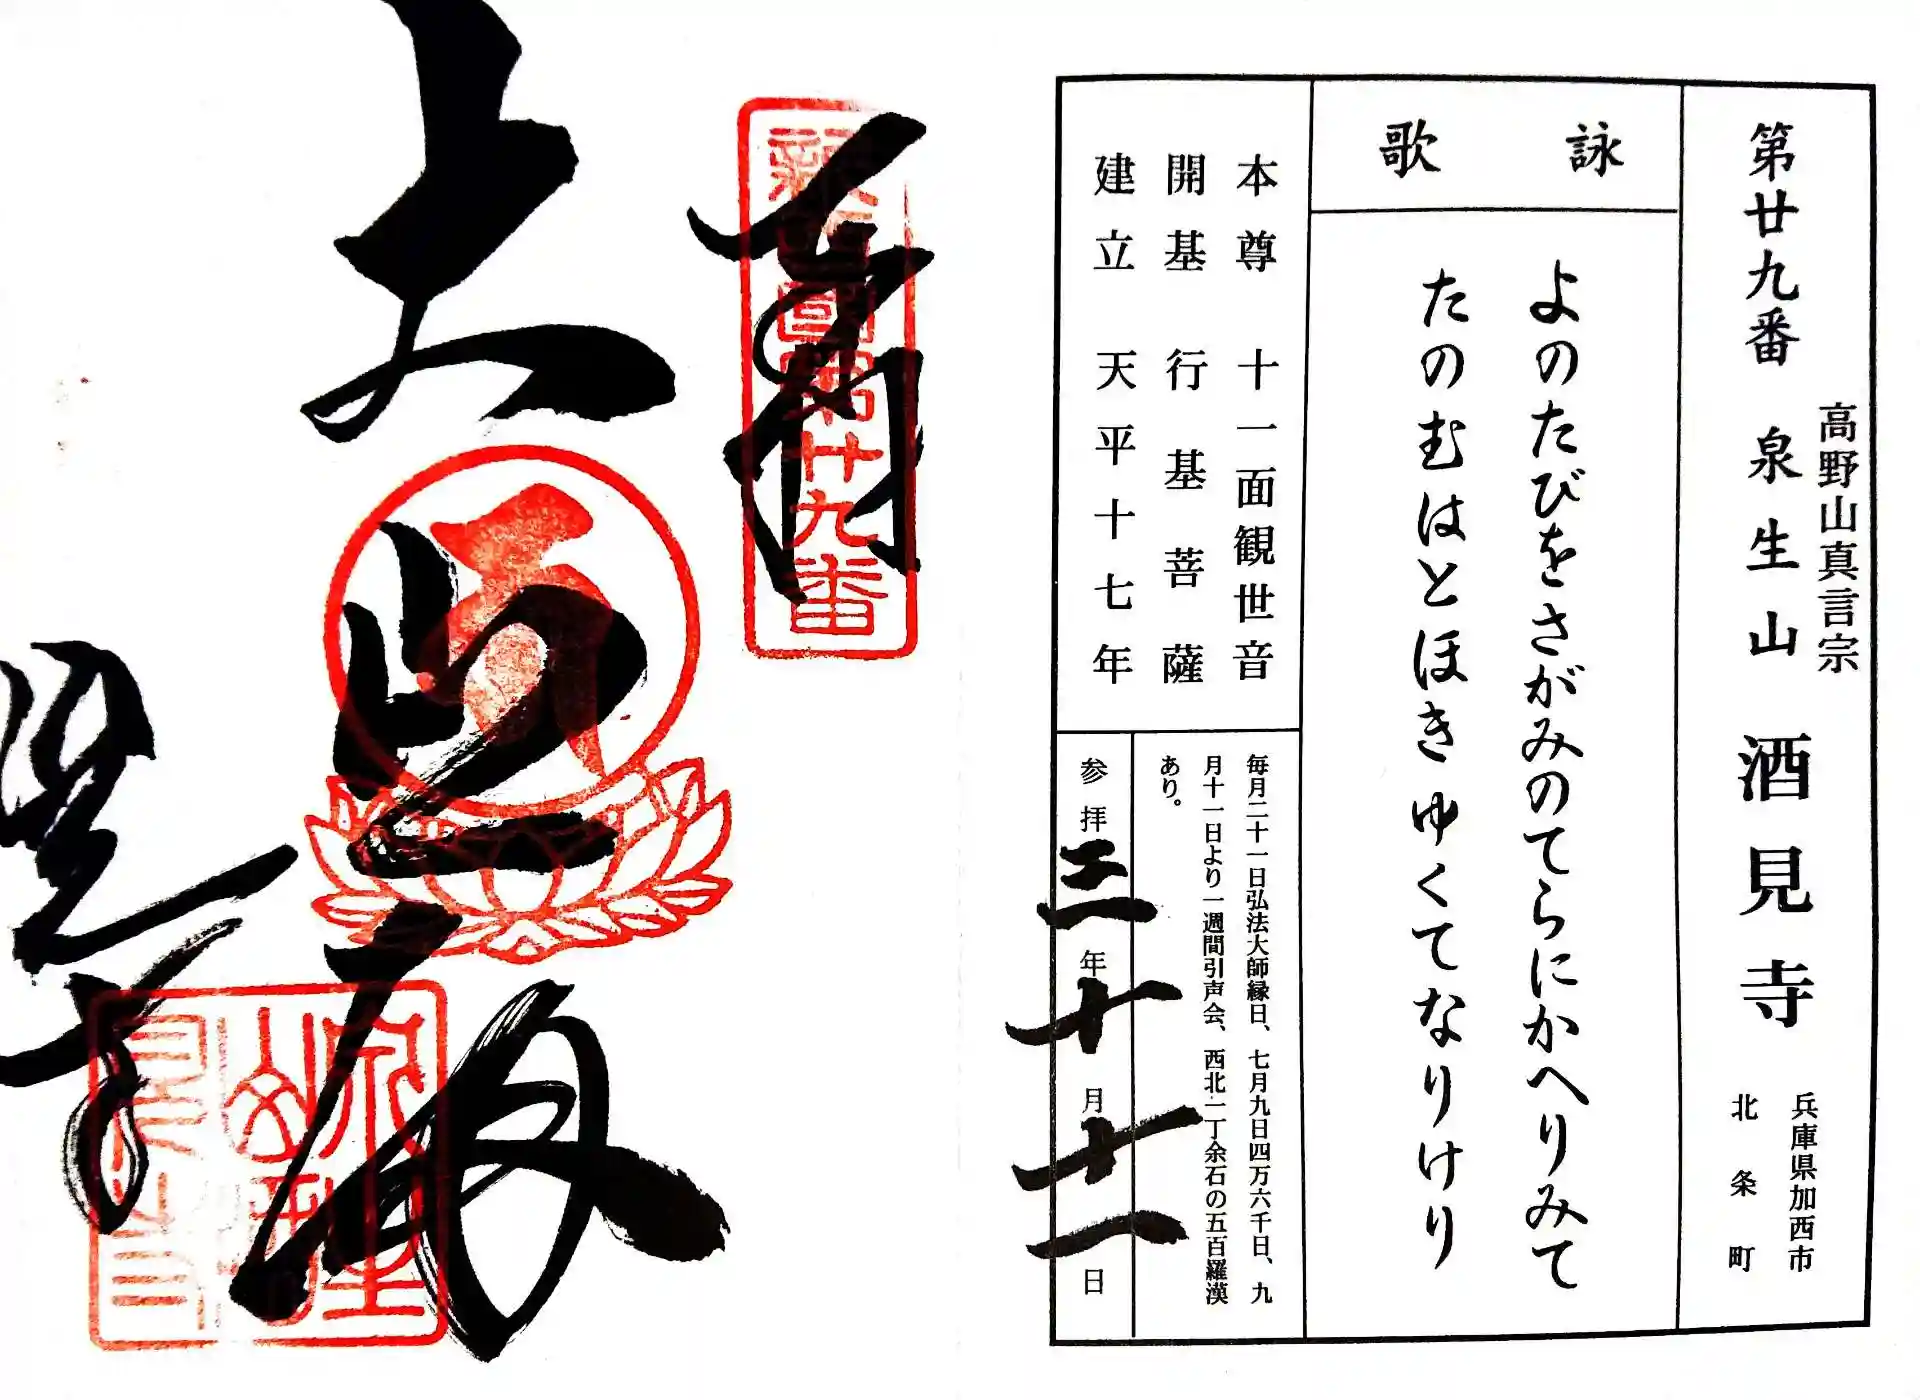 高野山真言宗
第廿九番 泉生山 酒見寺
兵庫県加西市
北条町
詠歌
よのたびをさがみのてらにかへりみて
たのむはとほきゆくてなりけり
本尊 十一面観世音
開基 行基菩薩
建立 天平十七年
毎月二十一日弘法大師縁日、七月九日四万六千日、九
月十一日より一週間引声会、西北一丁余石の五百羅漢
あり。
参拝三年十月十一日
奉拝
新西国第廿九番
大悲殿
酒見寺